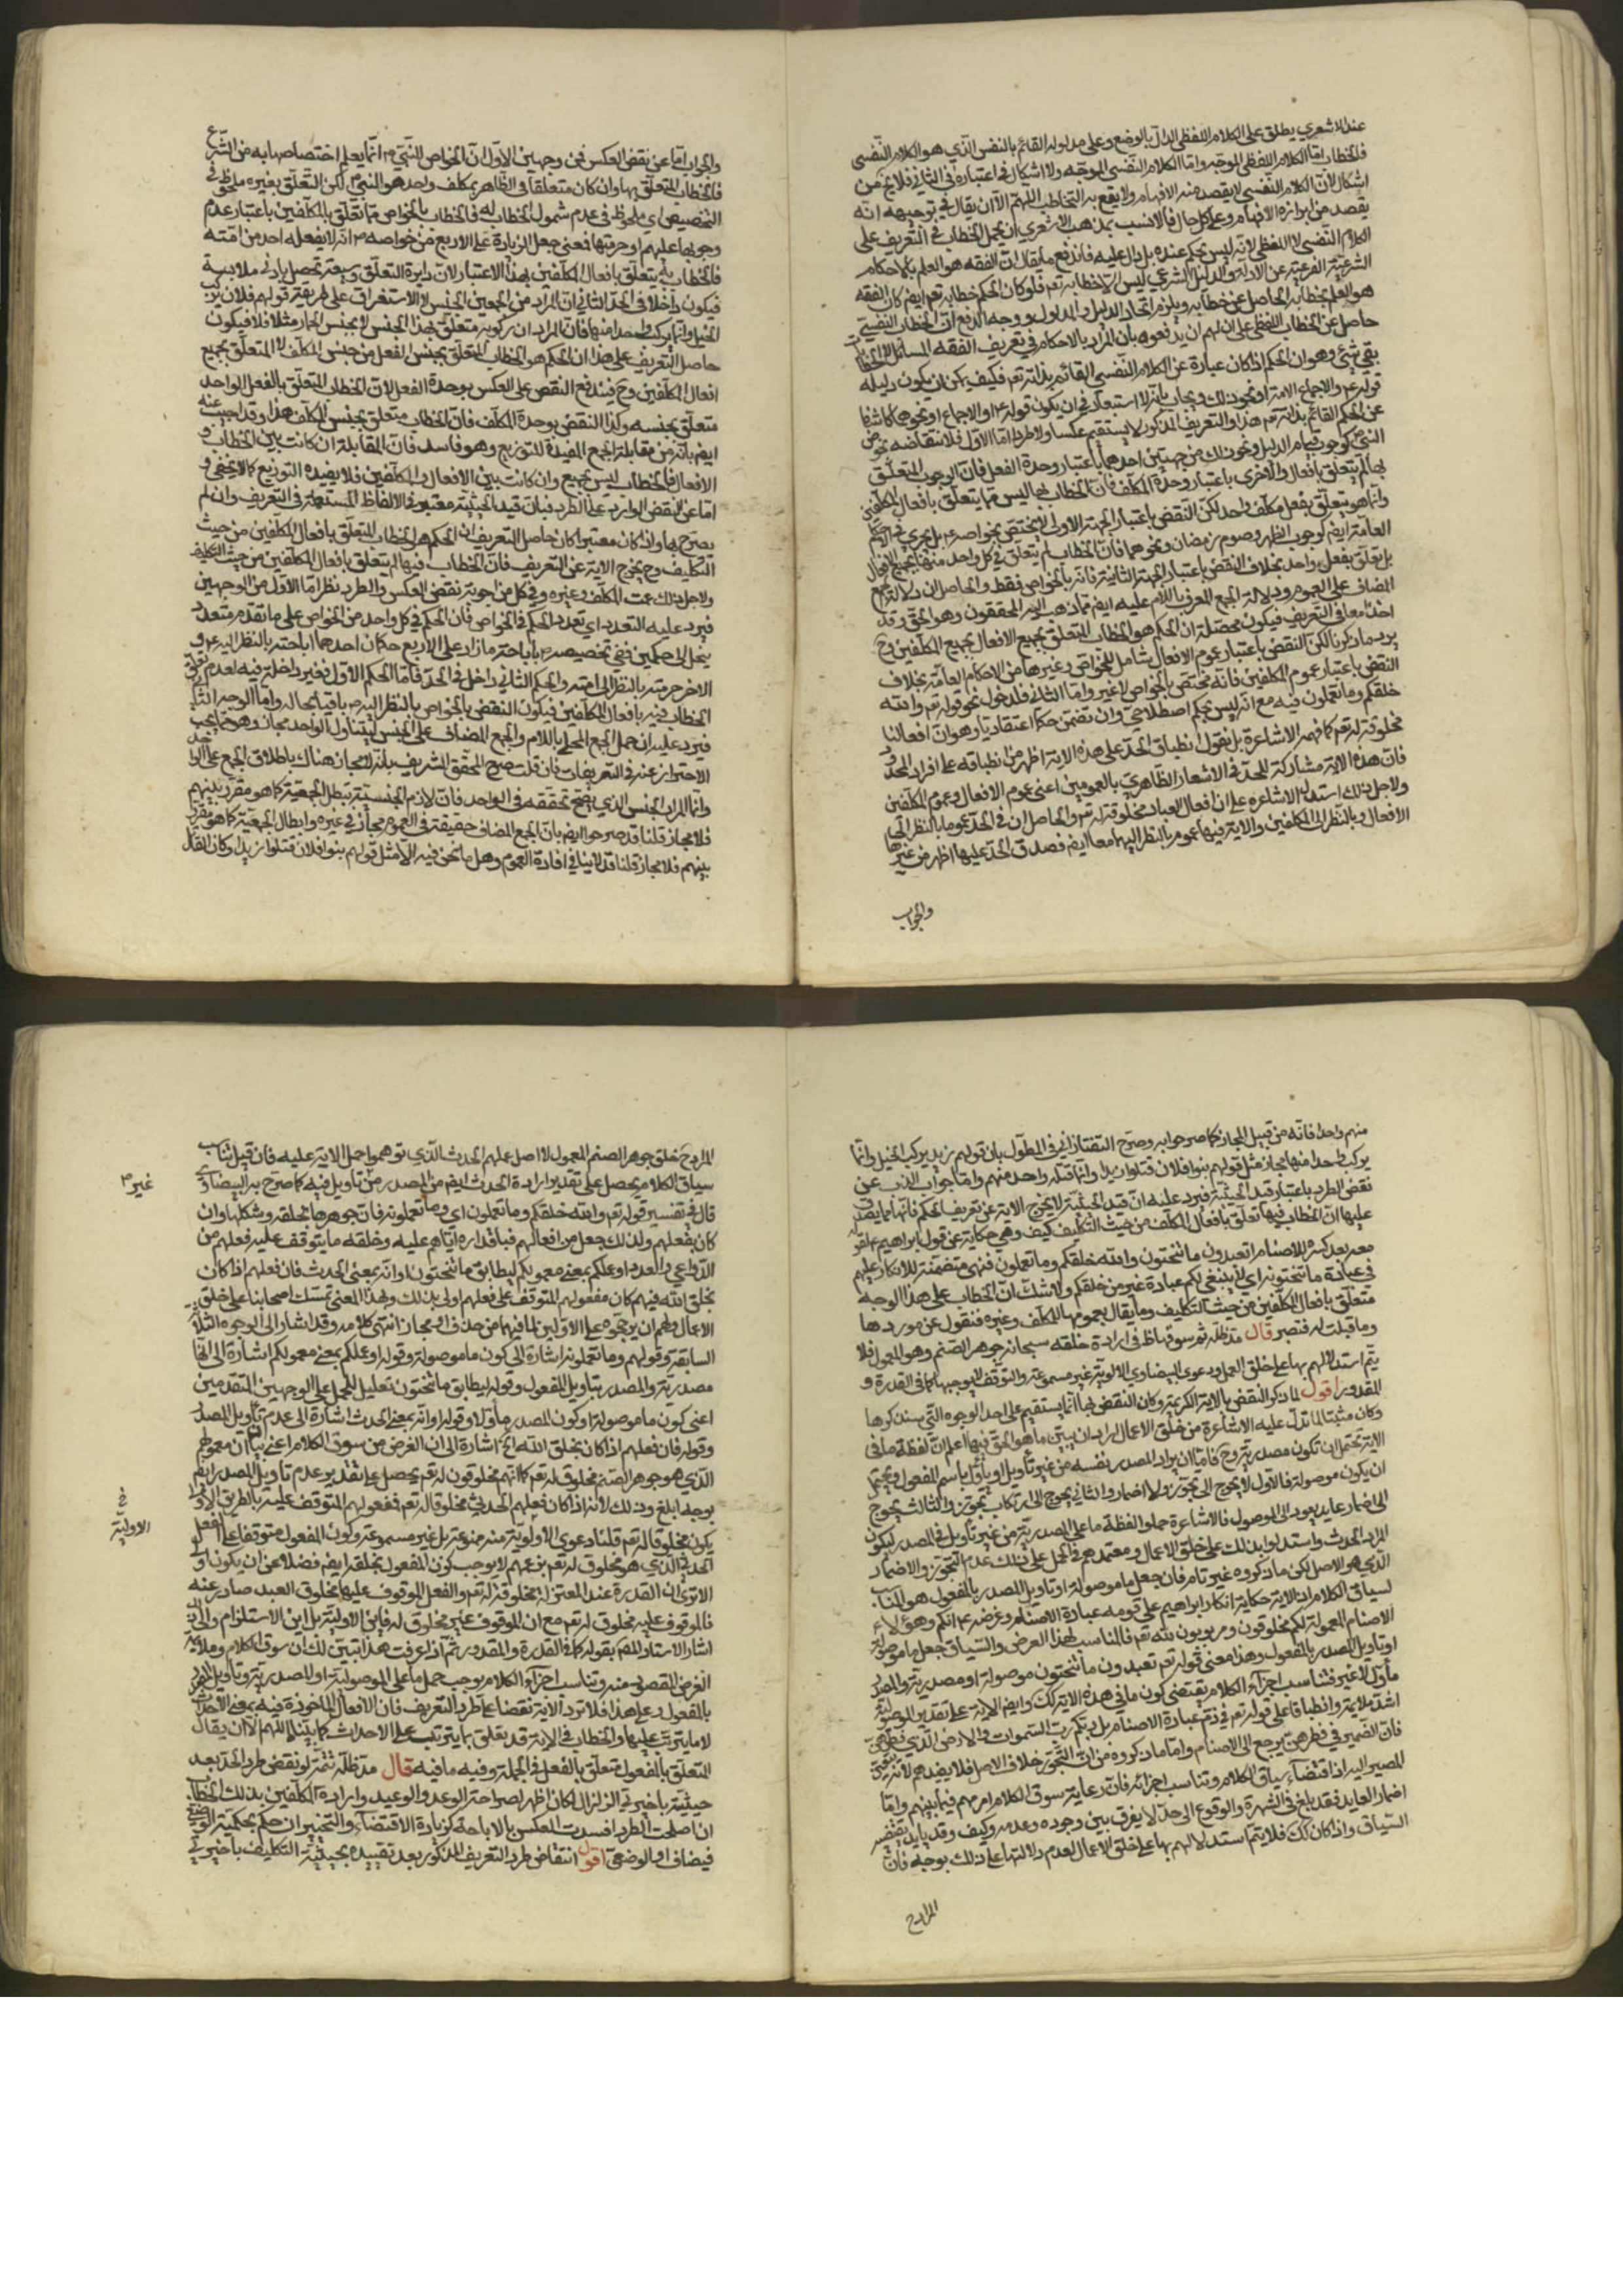 عند الاشعري يطلق على الكلام اللفظي الدال بالوضع وعلى مدلوله القائم بالنفس الذي هو الكلام النفسي
فالخطاب اما الكلام اللفظي الموجه واما الكلام النفسي الموجه ولا اشكال في اعتباره في الثاني فلا يخ من
اشكال لان الكلام النفسي لا يقصد منه الافهام ولا يقع به التخاطب اللهم الا ان يقال في توجيهه انه
يقصد من ابرازه الافهام وعلى كل حال فالانسب بمذهب الاشعري ان يحمل الخطاب في التعريف على
الكلام النفسي لا اللفظي لانه ليس بحكم عنده بل دال عليه فاندفع ما يقال ان الفقه هو العلم بالاحكام
الشرعية الفرعية عن الادلة والدليل الشرعي ليس الا خطابه تعم فلو كان الحكم خطابه تعم ايضم كان الفقه
هو العلم بخطابه الحاصل عن خطابه ويلزم اتحاد الدليل والمدلول ووجه الدفع ان الخطاب النفسي
حاصل عن الخطاب اللفظي على ان لهم ان يدفعوه بان المراد بالاحكام في تعريف الفقه المسائل
بقي شئ وهو ان الحكم اذا كان عبارة عن الكلام النفسي القائم بذاته تعم فكيف يمكن ان يكون دليله
قوله ع م والاجماع الامة او نحو ذلك ويجاب بانه لا استبعاد في ان يكون قوله ع م او الاجماع او نحوهما كاشفا
عن الحكم القائم بذاته تعم هذا والتعريف المذكور لا يستقيم عكسا ولا طردا اما الاول فلانتقاضه بخواص
النبي كوجوب قيام الليل ونحو ذلك من جهتين احدهما باعتبار وحدة الفعل فان الوجوب المتعلق
بها لم يتعلق بافعال والاخرى باعتبار وحدة المكلف فان الخطاب بها ليس مما يتعلق بافعال المكلفين
وانما هو يتعلق بفعل مكلف واحد لكن النقض باعتبار الجهة الاولى لا يختص بخواصه بل يجري في الاحكام
العامة ايضم كوجوب الظهر وصوم رمضان ونحوهما فان الخطاب لم يتعلق في كل واحد منها بجميع الافعال
بل يتعلق بفعل واحد بخلاف النقض باعتبار الجهة الثانية فانه بالخواص فقط والحاصل ان دلالة الجمع
المضاف على العموم ودلالة الجمع المعرف باللام عليه ايضم مما ذهب اليه المحققون وهو الحق وقد
اخذا معا في التعريف فيكون محصله ان الحكم هو الخطاب المتعلق بجميع الافعال جميع المكلفين وح
يرد ما ذكرنا لكن النقض باعتبار عموم الافعال شامل للخواص وغيرها من الاحكام العامة بخلاف
النقض باعتبار عموم المكلفين فانه مختص بالخواص لا غير واما الثاني فلدخول نحو قوله تعم والله
خلقكم وما تعملون فيه مع انه ليس بحكم اصطلاحي وان تضمن حكما اعتقاديا وهو ان افعالنا
مخلوقة له تعم كما فهمه الاشاعرة بل نقول انطباق الحد على هذه الاية اظهر من انطباقه على افراد المحدود
فان هذه الاية مشاركة للحد في الاشعار الظاهري بالعمومين اعني عموم الافعال وعموم المكلفين
ولاجل ذلك استدل الاشاعرة على ان افعال العباد مخلوقة له تعم والحاصل ان في الحد عموما بالنظر الى
الافعال وبالنظر الى المكلفين والاية فيها عموم بالنظر اليهما معا ايضم فصدق الحد عليها اظهر من غيرها
والجواب
والجواب اما عن نقض العكس فمن وجهين الاول ان الخواص للنبي ص انما يعلم اختصاصها به من الشرع
فالخطاب المتعلق بها وان كان متعلقا في الظاهر بمكلف واحد هو النبي ص لكن التعلق بغيره ملحوظ في
التخصيص اي ملحوظ في عدم شمول الخطاب له فالخطاب بالخواص مما تعلق بالمكلفين باعتبار عدم
وجوبها عليهم او حرمتها فمعنى جعل الزيادة على الاربع من خواصه ص انه لا يفعله احد من امته
فالخطاب به يتعلق بافعال المكلفين بهذا الاعتبار لان دايرة التعلق وسيعة تحصل بادنى ملابسة
فيكون داخلا في الحد الثاني ان المراد من الجمعين الجنس لا الاستغراق على طريقة قولهم فلان يركب
الخيل وانما يركب واحدا منها فان المراد ان ركوبه متعلق بهذا الجنس لا بجنس الحمار مثلا فلا فيكون
حاصل التعريف على هذا ان الحكم هو الخطاب المتعلق بجنس الفعل من جنس المكلف لا المتعلق بجميع
افعال المكلفين وح فيندفع النقض على العكس بوحدة الفعل لان الخطاب المتعلق بالفعل الواحد
متعلق بجنسه وكذا النقض بوحدة المكلف فان الخطاب متعلق بجنس المكلف هذا وقد اجيب عنه
ايضم بانه من مقابلة الجمع المفيدة للتوزيع وهو فاسد فان المقابلة ان كانت بين الخطاب و
الافعال فالخطاب ليس بجميع وان كانت بين الافعال والمكلفين فلا يفيده التوزيع كما لا يخفى و
اما عن النقض الوارد على الطرد فبان قيد الحيثية معتبر في الالفاظ المستعملة في التعريف وان لم
يصرح بها واذا كان معتبرا كان حاصل التعريف ان الحكم هو الخطاب المتعلق بافعال المكلفين من حيث
التكليف وح يخرج الاية عن التعريف فان الخطاب فيها لم يتعلق بافعال المكلفين من حيث التكليف
ولاجل ذلك عمت المكلف وغيره وفي كل من اجوبة نقض العكس والطرد نظر اما الاول من الوجهين
فيرد عليه التعدد اي تعدد الحكم في الخواص فان الحكم في كل واحد من الخواص على ما تقدم متعدد
ينحل الى حكمين ففي تخصيصه ص باباحة ما زاد على الاربع حكمان احدهما اباحته بالنظر اليه ص و
الاخر حرمته بالنظر الى امته والحكم الثاني داخل في الحد فاما الحكم الاول فغير داخل فيه لعدم تعلق
الخطاب فيه بافعال المكلفين فيكون النقض بالخواص بالنظر اليه ص باقيا بحاله واما الوجه الثاني
فيرد عليه ان حمل الجمع المحلى باللام والجمع المضاف على الجنس ليتناول الواحد مجاز وهو مما يجب
الاحتراز عنه في التعريفات فان قلت صرح المحقق الشريف بانه لا مجاز هناك باطلاق الجمع على الواحد
وانما المراد الجنس الذي يصح تحققه في الواحد فان لازم الجنسية تبطل الجمعية كما هو مقرر بينهم
فلا مجاز قلنا قد صرحوا ايضم بان الجمع المضاف حقيقة في العموم مجاز في غيره وابطال الجمعية كما هو مقرر
بينهم فلا مجاز قلنا قد لا ينافي افادة العموم وهل ما نحن فيه الا مثل قولهم بنو افلان قتلوا زيدا وكان القاتل
منهم واحدا فانه من قبيل المجاز كما صرحوا به وصرح التفتازاني في المطول بان قولهم زيد يركب الخيل وانما
يركب واحدا منها مجاز مثل قولهم بنوا فلان قتلوا زيدا وانما قتله واحد منهم واما جواب الذب عن
نقض الطرد باعتبار قيد الحيثية فيرد عليه ان قيد الحيثية لا يخرج الاية عن تعريف الحكم فانها مما يصدق
عليها ان الخطاب فيها تعلق بافعال المكلف من حيث التكليف كيف وهي حكاية عن قول ابراهيم ع لقومه
معه بعد كسره للاصنام اتعبدون ما تنحتون والله خلقكم وما تعملون فهي متضمنة للانكار عليهم
في عبادة ما تنحتونه اي لا ينبغي لكم عبادة غير من خلقكم ولا شك ان الخطاب على هذا الوجه
متعلق بافعال المكلفين من حيث التكليف وما يقال بعمومها للمكلف وغيره فنقول عن موردها
وما قبلت له فتصر قال مد ظله ثم سوقها ظ في ارادة خلقه سبحانه جوهر الصنم وهو المعمول فلا
يتم استدلالهم بها على خلق العمل ودعوى البيضاوي الاولوية غير مسموعة والتوقف لا يوجبها كما في القدرة و
المقدور اقول لما ذكر النقض بالاية الكريمة وكان النقض بها انما يستقيم على احد الوجوه التي سنذكرها
وكان مثبتا لما تدل عليه الاشاعرة من خلق الاعمال اراد ان يبين ما هو الحق فيها اعلم ان لفظة ما في
الاية يحتمل ان تكون مصدرية وح فاما ان يراد المصدر بنفسه من غير تأويل او يأول باسم المفعول ويحتمل
ان يكون موصولة فالاول لا يحوج الى تجوز ولا اضمار والثاني يحوج الى ارتكاب تجوز والثالث يحوج
الى اضمار عايد يعود الى الموصول فالاشاعرة حملوا لفظة ما على المصدرية من غير تأويل في المصدر ليكون
المراد الحدث واستدلوا بذلك على خلق الاعمال ومعتمدهم في الحمل على ذلك عدم التجوز والاضمار
الذي هو الاصل لكن ما ذكروه غير تام فان جعل ما موصولة او تاويل المصدر بالمفعول هو المناسب
لسياق الكلام اذ الاية حكاية انكار ابراهيم على قومه عبادة الاصنام وغرضه ع انكم وهؤلاء
الاصنام المعمولة لكم مخلوقون ومربوبون لله تعم فالمناسب لهذا الغرض والسياق جعل ما موصولة
او تاويل المصدر بالمفعول وهذا معنى قوله تعم تعبدون ما تنحتون موصولة او مصدرية والمصدر
مأول لا غير فتناسب اجزاء الكلام يقتضي كون ما في هذه الاية كك وايضم الاية على تقدير الموصولة
اشد ملايمة وانطباقا على قوله تعم في ذم عبادة الاصنام بل ربكم رب السموات والارض الذي فطرهن
فان الضمير في فطرهن يرجع الى الاصنام واما ما ذكروه من ان التجوز خلاف الاصل فلا يفيدهم لانه يتعين
المصير اليه اذا اقتضاء سياق الكلام وتناسب اجزائه فان رعاية سوق الكلام امر مهم فيما بينهم واما
اضمار العايد فقد بلغ في الشهرة والوقوع الى حد لا يفرق بين وجوده وعدمه وكيف وقد يايد بقتضيه
السياق واذا كان كك فلا يتم استدلالهم بها على خلق الاعمال لعدم دلالتها على ذلك بوجه فان
المراد ح
المراد ح خلق جوهر الصنم المعمول لا اصل عملهم الحدث الذي توهموا حمل الاية عليه فان قيل تناسب
سياق الكلام يحصل على تقدير ارادة الحدث ايضم من المصدر من تأويل فيه كما صرح به البيضاوي
غير ص
قال في تفسير قوله تعم والله خلقكم وما تعملون اي وما تعملونه فان جوهرها بخلقه وشكلها وان
كان بفعلهم ولذلك جعل من افعالهم فباقداره اياهم عليه وخلقه ما يتوقف عليه فعلهم من
الدواعي والعدد او عملكم بمعنى معمولكم ليطابق ما تنحتون او انه بمعنى الحدث فان فعلهم اذا كان
بخلق الله فيهم كان مفعولهم المتوقف على فعلهم اولى بذلك وبهذا المعنى تمسك اصحابنا على خلق
الاعمال ولهم ان يرجحوه على الاولين لما فيهما من حذف او مجاز انتهى كلامه وقد اشار الى الوجوه الثلاثة
السابقة وقولهم وما تعملونه اشارة الى كون ما موصولة وقوله او عملكم بمعنى معمولكم اشارة الى انها
مصدرية والمصدر بتاويل المفعول وقوله ليطابق ما تنحتون تعليل للحمل على الوجهين المتقدمين
اعني كون ما موصولة او كون المصدر مأولا وقوله او انه بمعنى الحدث اشارة الى عدم تأويل المصدر
وقوله فان فعلهم اذا كان بخلق الله الخ اشارة الى ان الغرض من سوق الكلام اعني بيان ان معمولهم
الذي هو جوهر الصنم مخلوق له تعم كما انهم مخلوقون له تعم يحصل على تقدير عدم تأويل المصدر ايضم
بوجه ابلغ وذلك لانه اذا كان فعلهم الحدثي مخلوقا له تعم فمفعولهم المتوقف عليه بالطريق الاولى
في
الاولوية
يكون مخلوقا له تعم قلنا دعوى الاولوية منه ممنوعة بل غير مسموعة وكون المفعول متوقفا على الفعل
الحدثي الذي هو مخلوق له تعم بزعمهم لا يوجب كون المفعول بخلقه ايضم فضلا عن ان يكون اولى
الا ترى ان القدرة عند المعتزلة مخلوقة له تعم والفعل الموقوف عليها مخلوق العبد صادر عنه
فالموقوف عليه مخلوق له تعم مع ان الموقوف غير مخلوق له فاين الاولوية بل اين الاستلزام والى ذلك
اشار الاستاد المص بقوله كما في القدرة والمقدور ثم اذا عرفت هذا تبين لك ان سوق الكلام وملايمة
الغرض المقصود منه وتناسب اجزاء الكلام يوجب حمل ما على الموصولية او المصدرية وتأويل المصدر
بالمفعول وعلى هذا فلا ترد الاية نقضا على طرد التعريف فان الافعال الماخوذة فيه بمعنى الاحداث
لا ما يترتب عليها والخطاب في الاية قد يعلق بما يترتب على الاحداث كما بيناه اللهم الا ان يقال
المتعلق بالمفعول متعلق بالفعل في الجملة وفيه ما فيه قال مد ظله تتمة لو نقض طرد الحد بعد
حيثيته باخيرتي الزلزال لكان اظهر لصراحة الوعد والوعيد وارادة المكلفين بذلك الخطاب
ان اصلحت الطرد افسدت العكس بالاباحة كزيادة الاقتضاء والتخيير ان حكم بحكمية الوضعي
فيضاف او الوضعي اقول انتقاض طرد التعريف المذكور بعد تقييده بحيثية التكليف باخيرتي